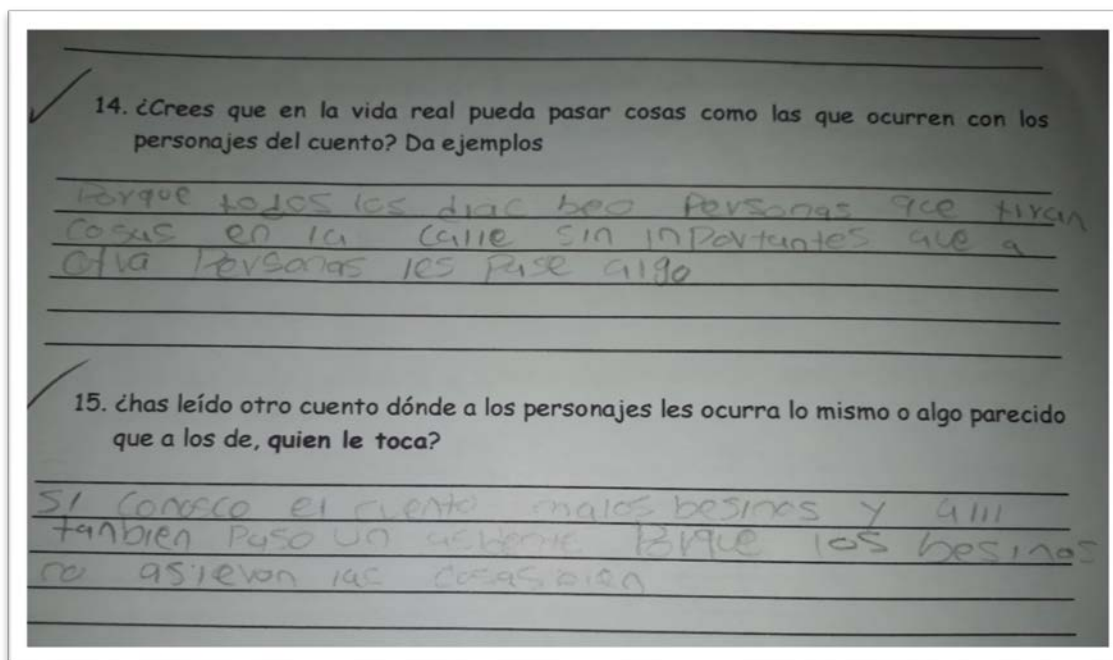 14. ¿Crees que en la vida real pueda pasar cosas como las que ocurren con los
personajes del cuento? Da ejemplos
Porque todos los diac beo Personas que tiran
Cosas en la calle sin inportantes que a
otra Personas les Pase algo
15. ¿has leído otro cuento dónde a los personajes les ocurra lo mismo o algo parecido
que a los de, quien le toca?
Si Conosco el cuento malos besinos y alli
tanbien Paso un Porque los besinos
no asieron las cosas bien